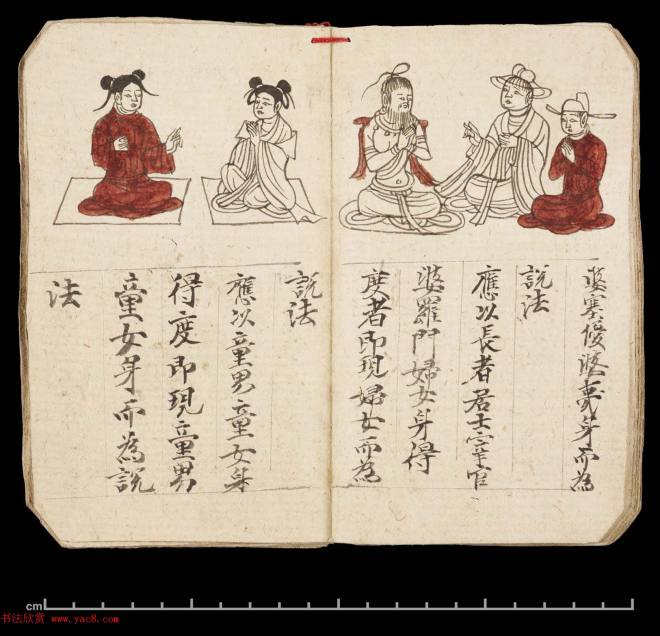 婆塞優婆夷身而為
説法
應以長者居士宰官
婆羅門婦女身得
度者即現婦女而為
説法
應以童男童女身
得度即現童男
童女身而為説
法
cm
书法欣赏 www.yac8.com